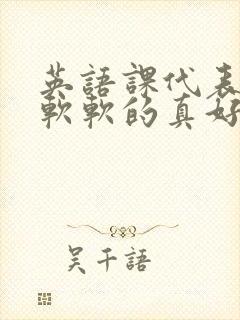 英語課代表
軟軟的真好
吳千語